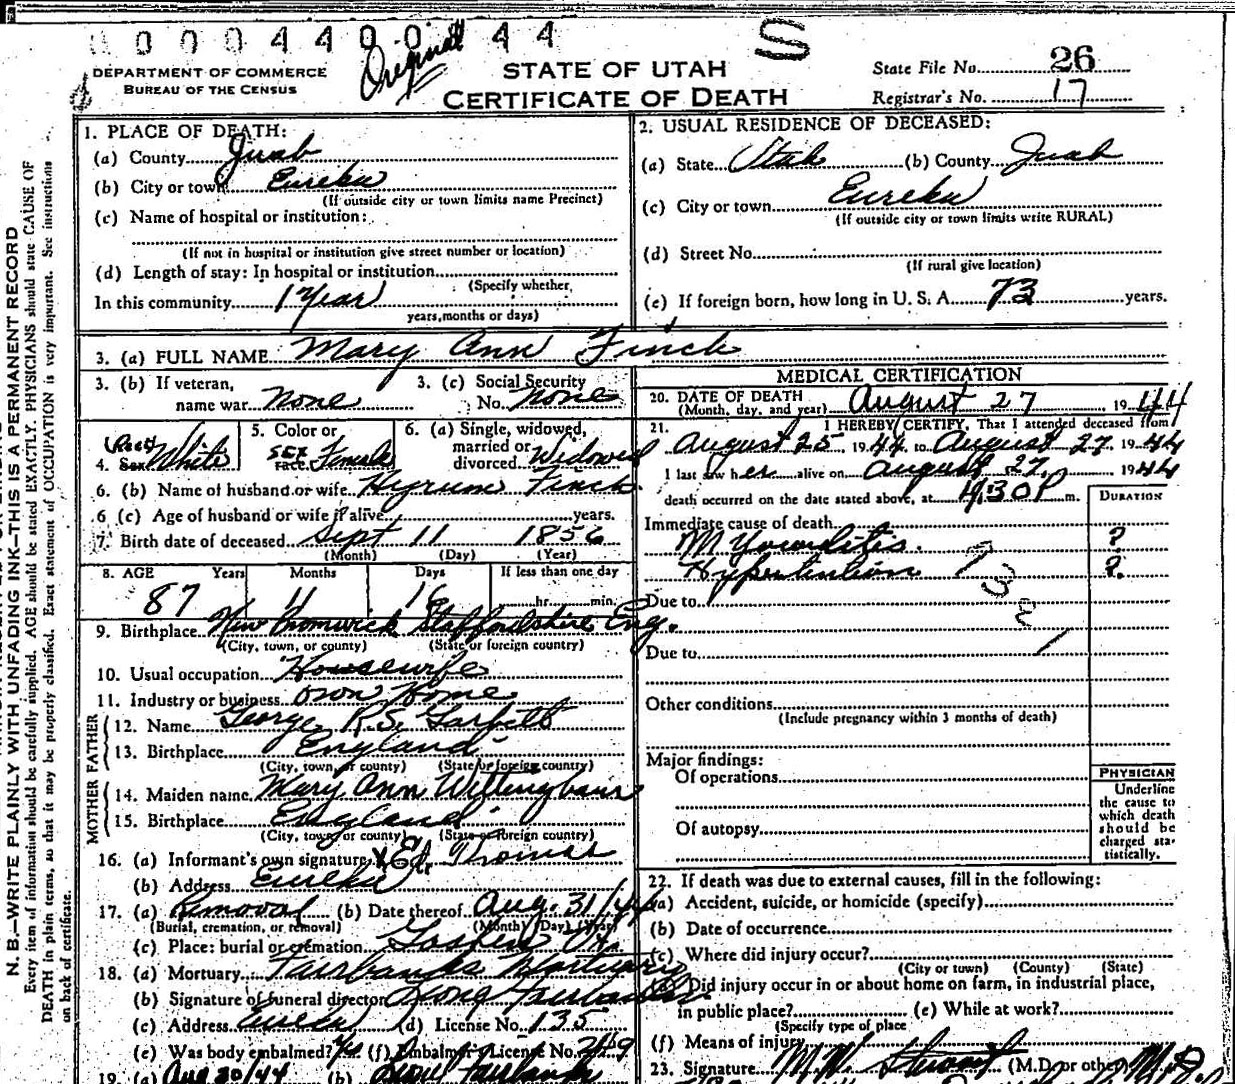 0 0 0 4 4 0 0 4 4
Original
S
DEPARTMENT OF COMMERCE
BUREAU OF THE CENSUS
STATE OF UTAH
CERTIFICATE OF DEATH
State File No. 26
Registrar's No. 17
N. B.—WRITE PLAINLY WITH UNFADING INK—THIS IS A PERMANENT RECORD
Every item of information should be carefully supplied. AGE should be stated EXACTLY. PHYSICIANS should state CAUSE OF
DEATH in plain terms, so that it may be properly classified. Exact statement of OCCUPATION is very important. See instructions
on back of certificate.
1. PLACE OF DEATH:
(a) County Juab
(b) City or town Eureka
(If outside city or town limits name Precinct)
(c) Name of hospital or institution:
(If not in hospital or institution give street number or location)
(d) Length of stay: In hospital or institution
(Specify whether,
In this community 1 Year
years, months or days)
2. USUAL RESIDENCE OF DECEASED:
(a) State Utah (b) County Juab
(c) City or town Eureka
(If outside city or town limits write RURAL)
(d) Street No.
(If rural give location)
(e) If foreign born, how long in U. S. A. 73 years.
3. (a) FULL NAME Mary Ann Finch
3. (b) If veteran, name war None
3. (c) Social Security No. None
4. Sex Race White
5. Color or race Sex Female
6. (a) Single, widowed, married or divorced Widowed
6. (b) Name of husband or wife Hyrum Finch
6 (c) Age of husband or wife if alive years.
7. Birth date of deceased Sept 11 1856
(Month) (Day) (Year)
8. AGE Years Months Days If less than one day
87 11 16 hr. min.
9. Birthplace New Bromwick Staffordshire Eng.
(City, town, or county) (State or foreign country)
10. Usual occupation Housewife
11. Industry or business Own Home
FATHER
12. Name George R.S.
13. Birthplace England
(City, town, or county) (State or foreign country)
MOTHER
14. Maiden name Mary Ann
15. Birthplace England
(City, town or county) (State or foreign country)
16. (a) Informant's own signature x Ed. Thomas
(b) Address Eureka
17. (a) Removal (b) Date thereof Aug. 31/44
(Burial, cremation, or removal) (Month) (Day) (Year)
(c) Place: burial or cremation Goshen Uta
18. (a) Mortuary Fairbanks Mortuary
(b) Signature of funeral director Fairbanks
(c) Address Eureka (d) License No. 135
(e) Was body embalmed? Yes (f) Embalmer's License No. 249
19. (a) Aug 30/44 (b) Fairbanks
MEDICAL CERTIFICATION
20. DATE OF DEATH
(Month, day, and year) August 27, 1944
21. I HEREBY CERTIFY, That I attended deceased from
August 25, 1944 to August 27, 1944
I last saw her alive on August 27, 1944
death occurred on the date stated above, at m.
DURATION
Immediate cause of death
Myocarditis ?
Hypertention ?
Due to
Due to
Other conditions
(Include pregnancy within 3 months of death)
Major findings:
Of operations
Of autopsy
PHYSICIAN
Underline
the cause to
which death
should be
charged sta-
tistically.
22. If death was due to external causes, fill in the following:
(a) Accident, suicide, or homicide (specify)
(b) Date of occurrence
(c) Where did injury occur?
(City or town) (County) (State)
Did injury occur in or about home on farm, in industrial place,
in public place? (e) While at work?
(Specify type of place
(f) Means of injury
23. Signature M. M. Stewart (M.D. or other) M.D.